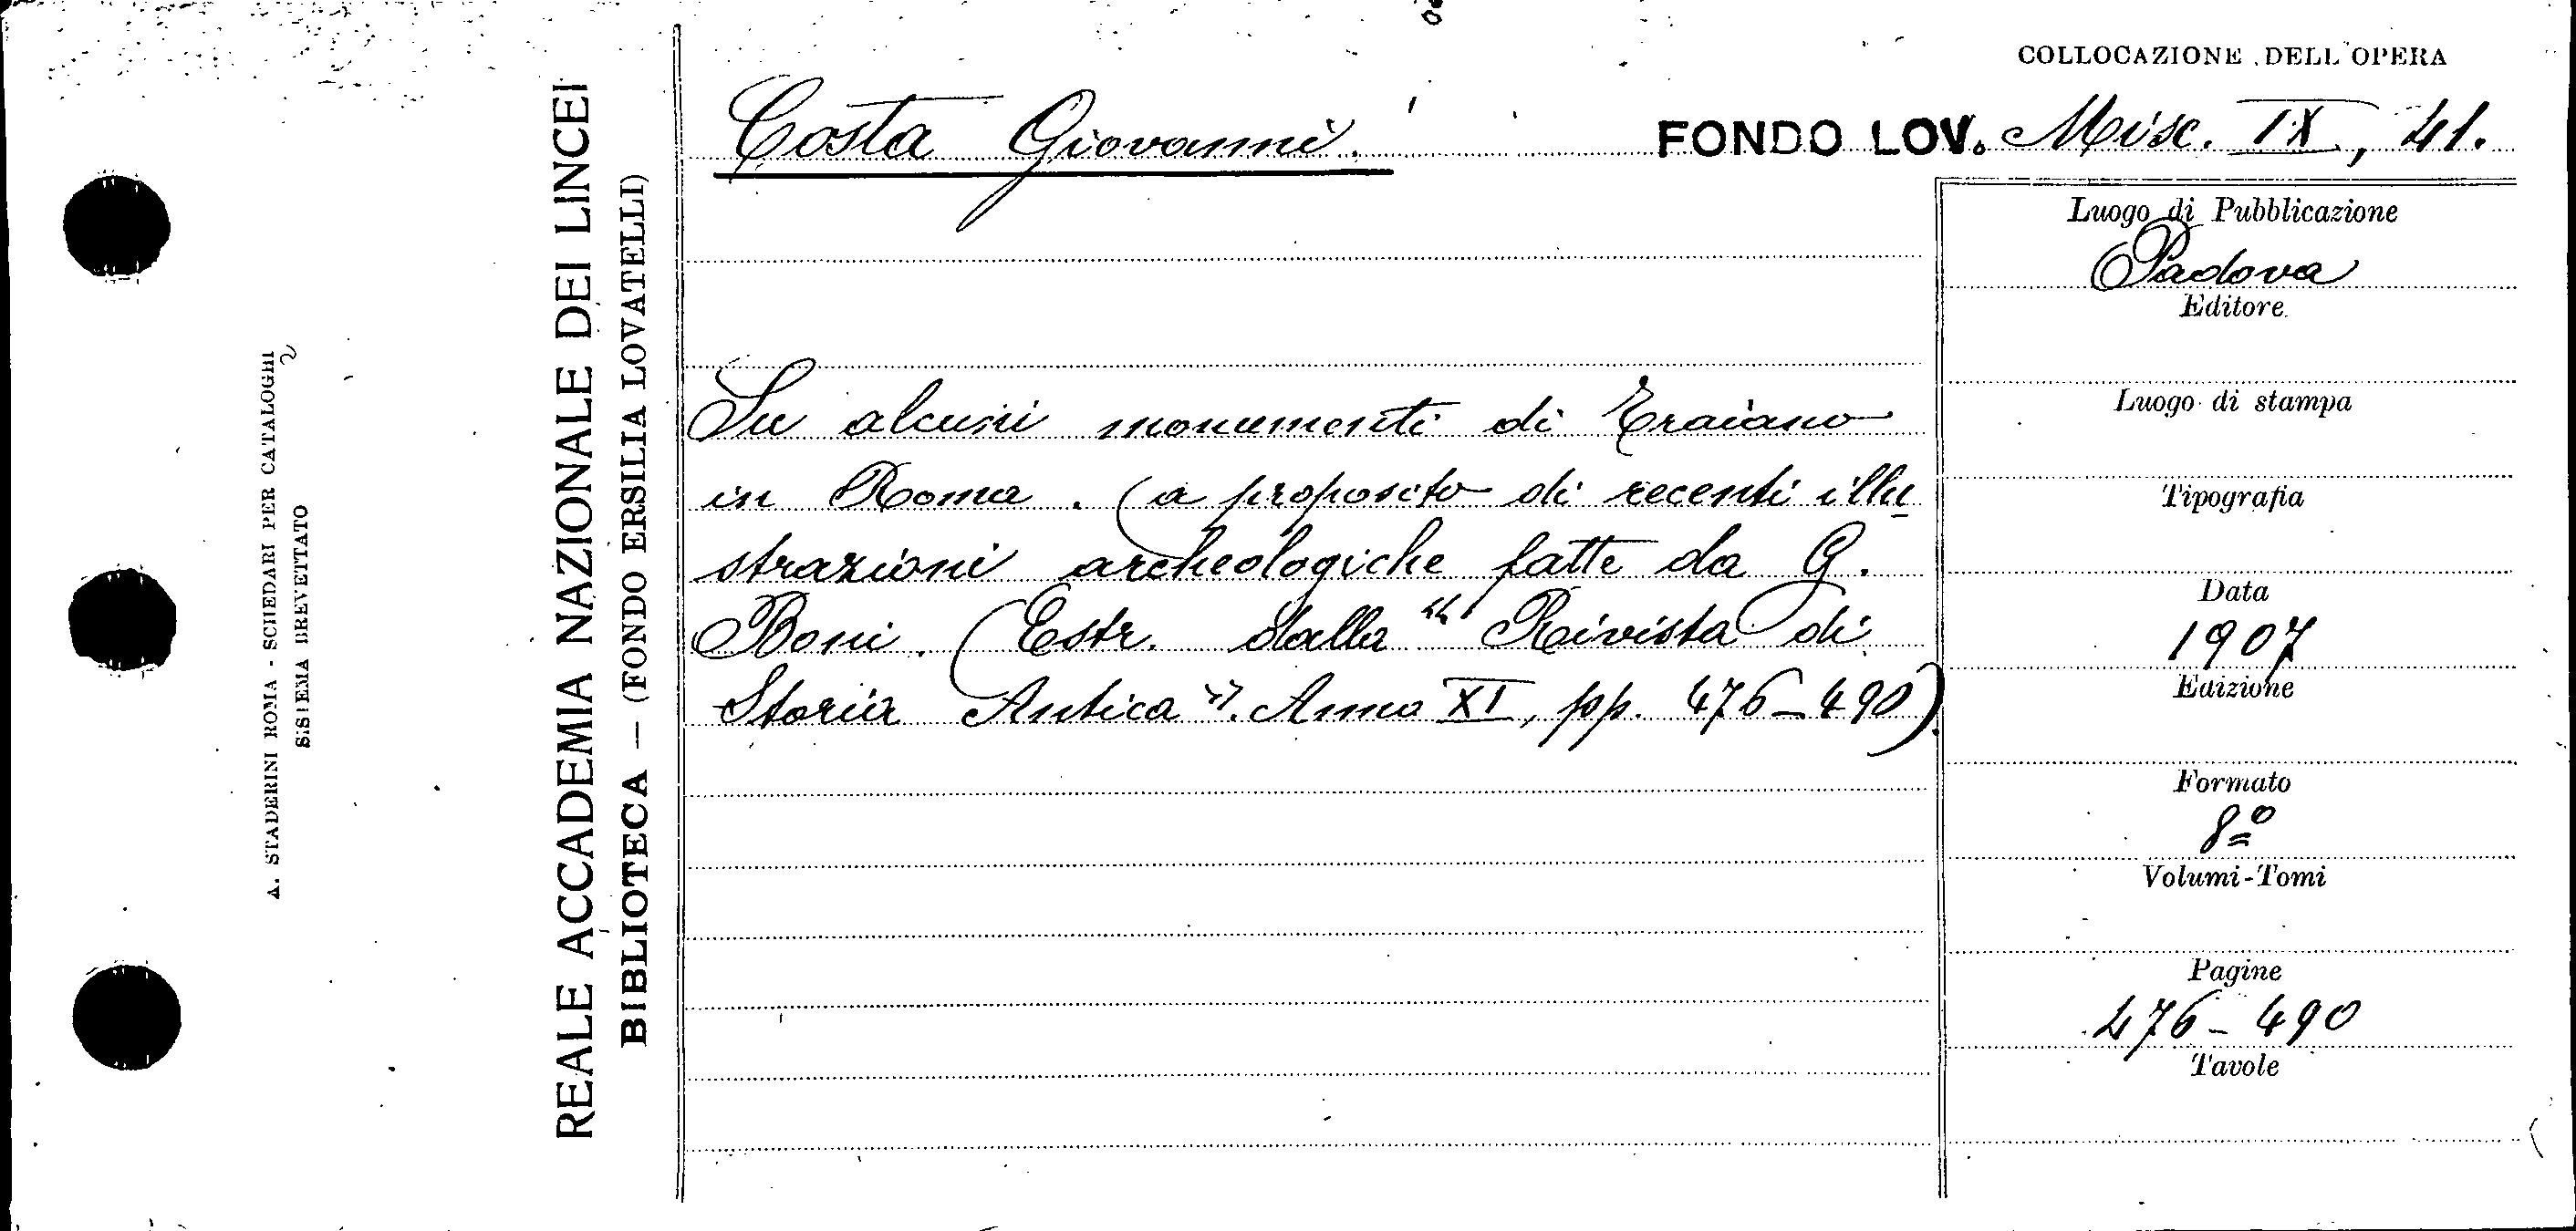 COLLOCAZIONE DELL'OPERA
Costa Giovanni.
FONDO LOV. Misc. IX, 41.
Su alcuni monumenti di Traiano
in Roma. (a proposito di recenti illu
strazioni archeologiche fatte da G.
Boni. (Estr. dalla "Rivista di
Storia Antica". Anno XI, pp. 476-490).
Luogo di Pubblicazione
Padova
Editore
Luogo di stampa
Tipografia
Data
1907
Edizione
Formato
8º
Volumi-Tomi
Pagine
476-490
Tavole
REALE ACCADEMIA NAZIONALE DEI LINCEI
BIBLIOTECA — (FONDO ERSILIA LOVATELLI)
A. STADERINI ROMA - SCHEDARI PER CATALOGHI
SISTEMA BREVETTATO